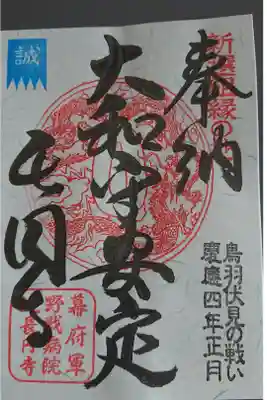 新選組縁の
奉納
鳥羽伏見の戦い
慶應四年正月
大和守安定
誠
長円寺
幕府軍
野戦病院
長円寺